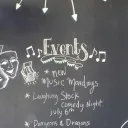 Events
* New
Music Mondays
* Laughing Stock
Comedy Night
July 6th
* Dungeons & Dragons